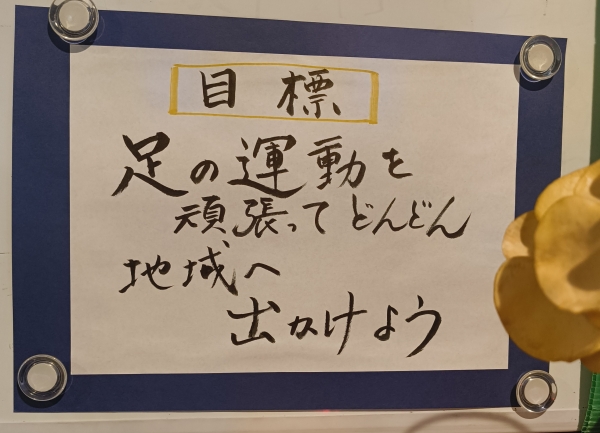 目標
足の運動を
頑張ってどんどん
地域へ
出かけよう